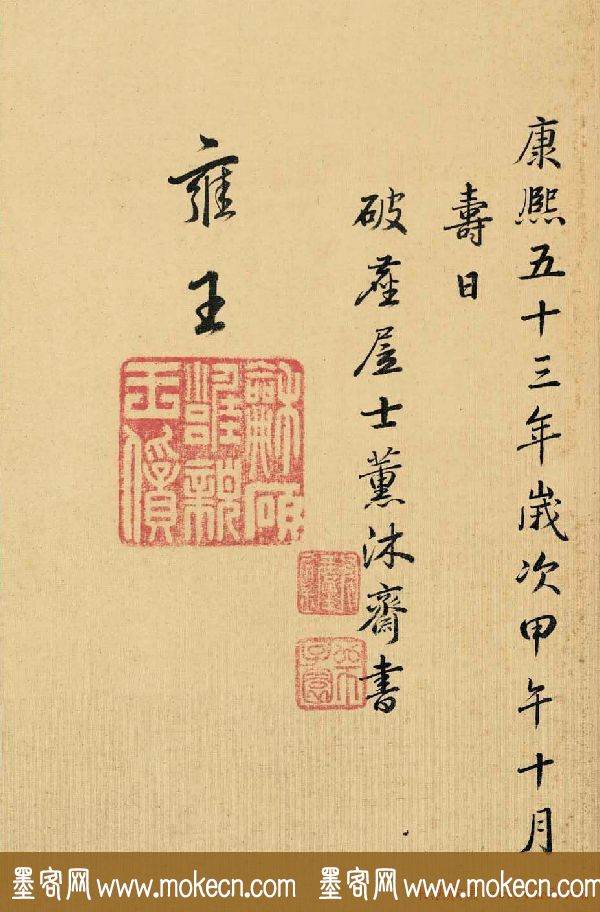 康熙五十三年歲次甲午十月
壽日
破塵居士薰沐齋書
雍王
龢碩
雝親
王
墨客网 www.mokecn.com 墨客网 www.mokecn.com